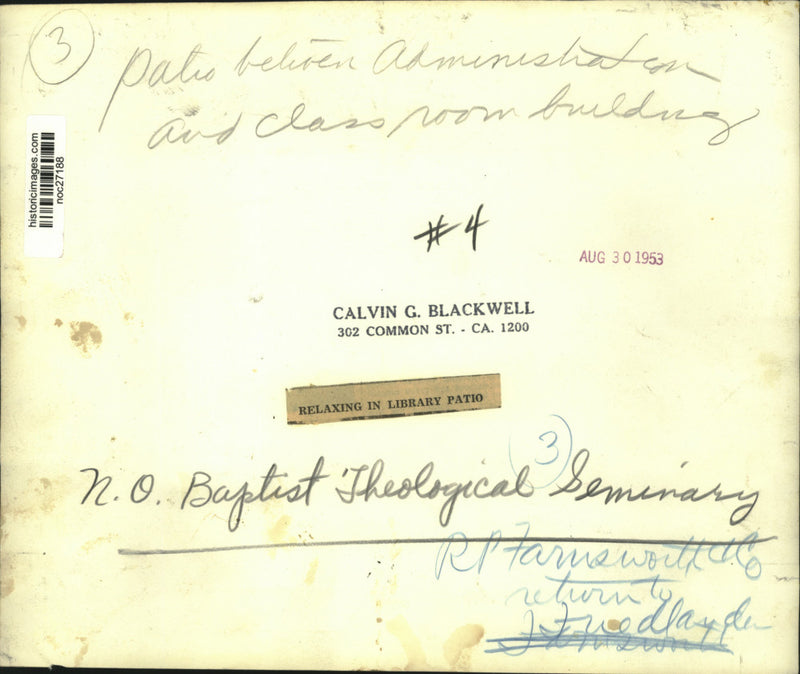 3
Patio between Administration
and class room building
historicimages.com
noc27188
#4
AUG 30 1953
CALVIN G. BLACKWELL
302 COMMON ST. - CA. 1200
RELAXING IN LIBRARY PATIO
3
N.O. Baptist Theological Seminary
R P Farnsworth & Co
return to
Friedlander
Farnsworth